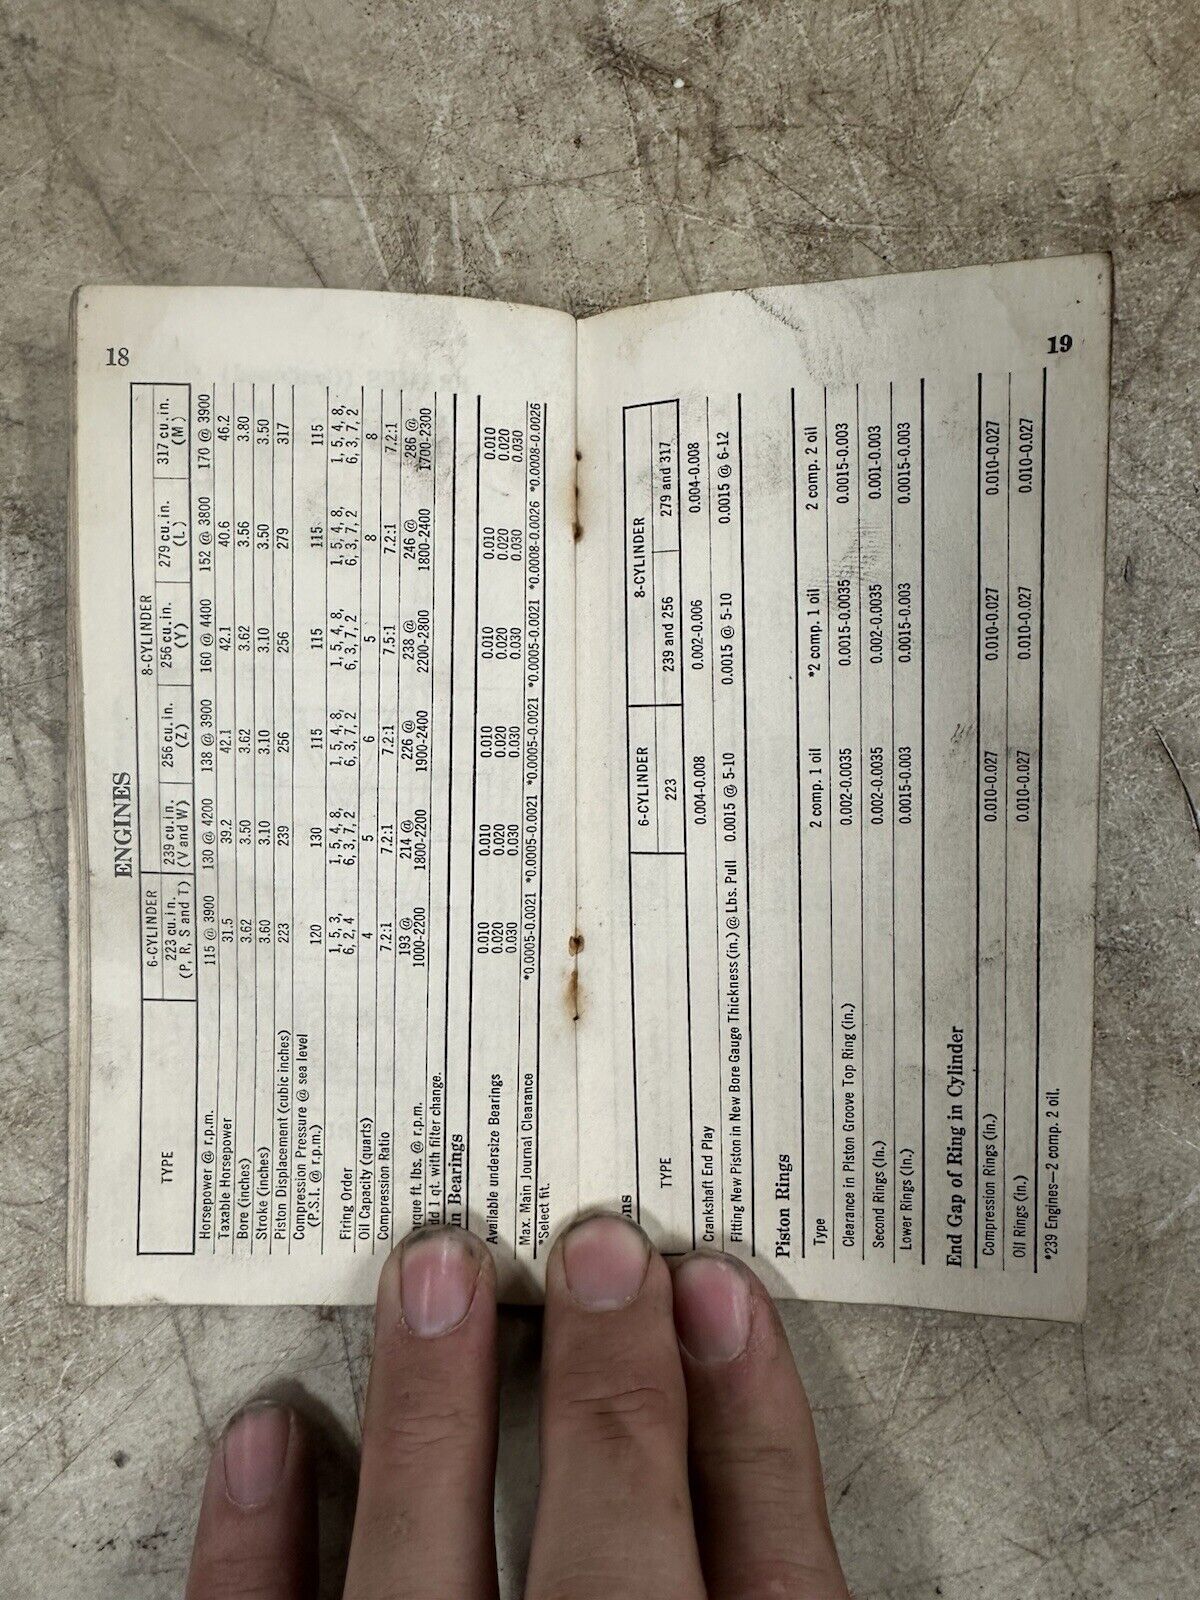 18
ENGINES
TYPE 6-CYLINDER 8-CYLINDER
223 cu.in. 239 cu.in. 256 cu.in. 256 cu.in. 279 cu.in. 317 cu.in.
(P, R, S and T) (V and W) (Z) (Y) (L) (M)
Horsepower @ r.p.m. 115 @ 3900 130 @ 4200 138 @ 3900 160 @ 4400 152 @ 3800 170 @ 3900
Taxable Horsepower 31.5 39.2 42.1 42.1 40.6 46.2
Bore (inches) 3.62 3.50 3.62 3.62 3.56 3.80
Stroke (inches) 3.60 3.10 3.10 3.10 3.50 3.50
Piston Displacement (cubic inches) 223 239 256 256 279 317
Compression Pressure @ sea level
(P.S.I. @ r.p.m.) 120 130 115 115 115 115
1, 5, 3, 1, 5, 4, 8, 1, 5, 4, 8, 1, 5, 4, 8, 1, 5, 4, 8, 1, 5, 4, 8,
Firing Order 6, 2, 4 6, 3, 7, 2 6, 3, 7, 2 6, 3, 7, 2 6, 3, 7, 2 6, 3, 7, 2
Oil Capacity (quarts) 4 5 6 5 8 8
Compression Ratio 7.2:1 7.2:1 7.2:1 7.5:1 7.2:1 7.2:1
193 @ 214 @ 226 @ 238 @ 246 @ 286 @
rque ft. lbs. @ r.p.m. 1000-2200 1800-2200 1900-2400 2200-2800 1800-2400 1700-2300
dd 1 qt. with filter change.
in Bearings
0.010 0.010 0.010 0.010 0.010 0.010
Available undersize Bearings 0.020 0.020 0.020 0.020 0.020 0.020
0.030 0.030 0.030 0.030 0.030 0.030
Max. Main Journal Clearance *0.0005-0.0021 *0.0005-0.0021 *0.0005-0.0021 *0.0005-0.0021 *0.0008-0.0026 *0.0008-0.0026
*Select fit.
19
ons
TYPE 6-CYLINDER 8-CYLINDER
223 239 and 256 279 and 317
Crankshaft End Play 0.004-0.008 0.002-0.006 0.004-0.008
Fitting New Piston in New Bore Gauge Thickness (in.) @ Lbs. Pull 0.0015 @ 5-10 0.0015 @ 5-10 0.0015 @ 6-12
Piston Rings
Type 2 comp. 1 oil *2 comp. 1 oil 2 comp. 2 oil
Clearance in Piston Groove Top Ring (in.) 0.002-0.0035 0.0015-0.0035 0.0015-0.003
Second Rings (In.) 0.002-0.0035 0.002-0.0035 0.001-0.003
Lower Rings (In.) 0.0015-0.003 0.0015-0.003 0.0015-0.003
End Gap of Ring in Cylinder
Compression Rings (in.) 0.010-0.027 0.010-0.027 0.010-0.027
Oil Rings (in.) 0.010-0.027 0.010-0.027 0.010-0.027
*239 Engines—2 comp. 2 oil.